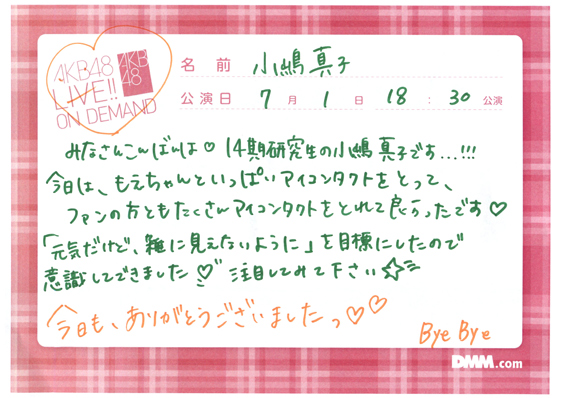 AKB48
LIVE!!
ON DEMAND
AKB
48
名 前 小嶋真子
公演日 7 月 1 日 18 : 30 公演
みなさんこんばんは♡ 14期研究生の小嶋真子です...!!!
今日は、もえちゃんといっぱいアイコンタクトをとって、
ファンの方ともたくさんアイコンタクトをとれて良かったです♡
「元気だけど、雑に見えないように」を目標にしたので
意識してできました♡ 注目してみて下さい☆
今日も、ありがとうございましたっ♡♡
Bye Bye
DMM.com